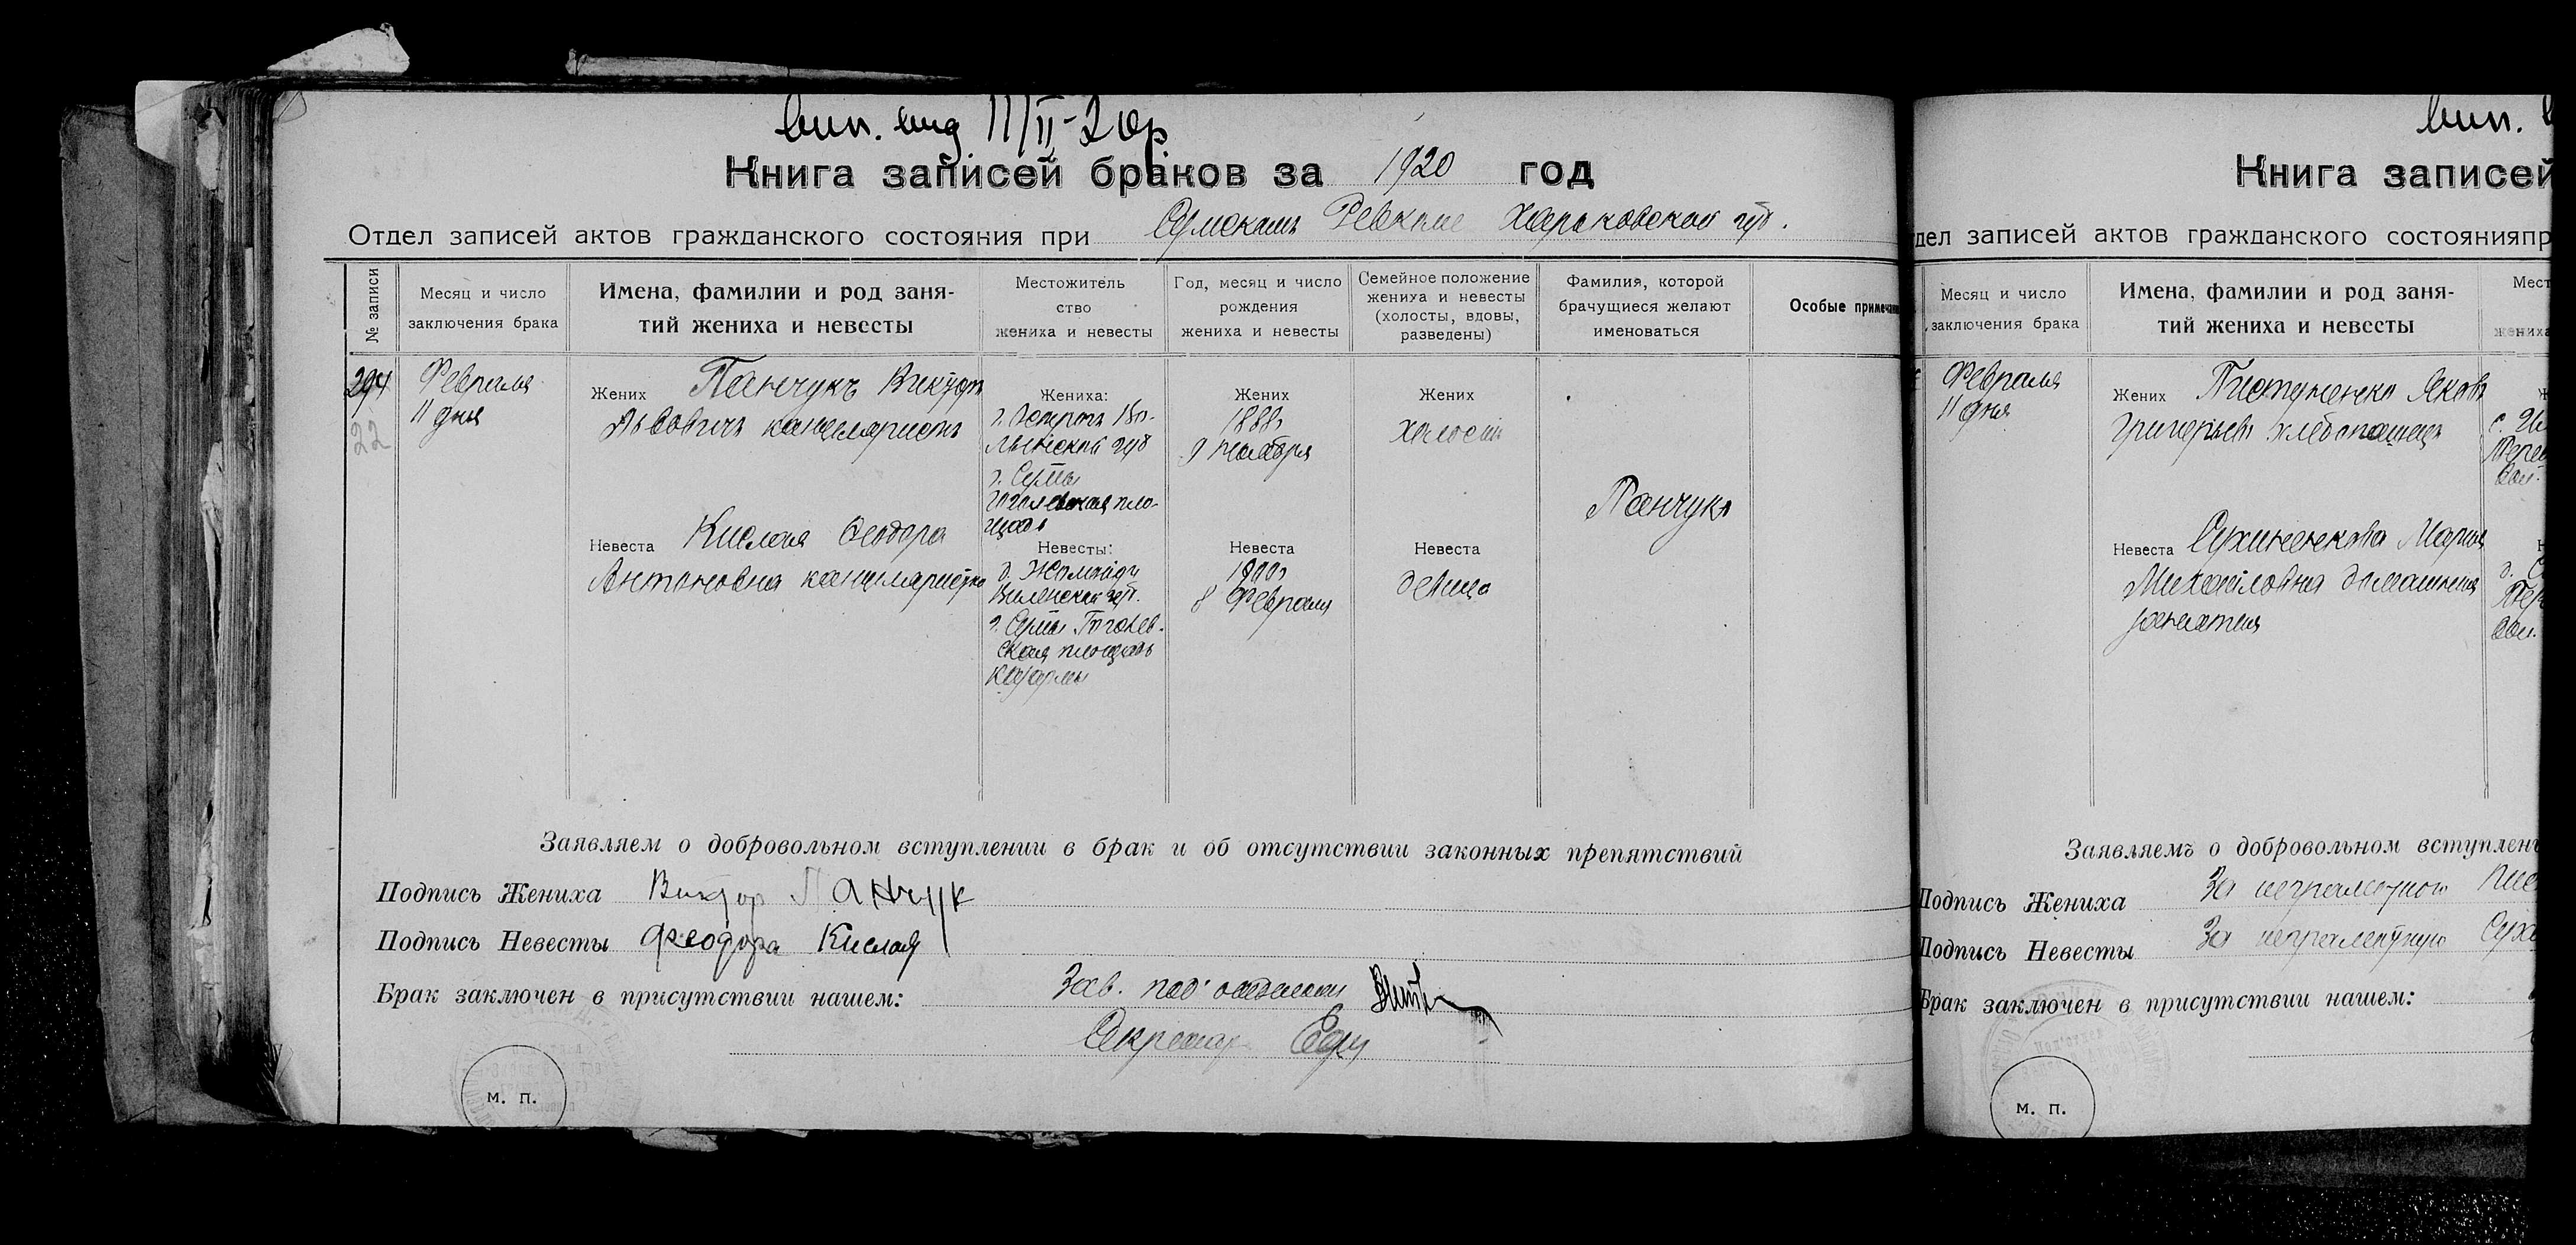 вип. вид 11/II-20р.
Книга записей браков за 1920 год
Отдел записей актов гражданского состояния при Сумскомъ Ревкоме Харьковской губ.
№ записи
Месяц и число заключения брака
Имена, фамилии и род занятий жениха и невесты
Местожительство жениха и невесты
Год, месяц и число рождения жениха и невесты
Семейное положение жениха и невесты (холосты, вдовы, разведены)
Фамилия, которой брачущиеся желают именоваться
Особые примечан
294
22
Февраля
11 дня
Жених Панчукъ Викторъ
Львовичъ канцеляристъ
Невеста Кислая Феодора
Антоновна канцеляристка
Жениха:
г. Острогъ Во-
лынской губ
г. Сумы
Гоголевская пло-
щадь
Невесты:
Виленской губ.
г. Сумы Гоголев-
ская площадь
казармы
Жених
1888г
9 Ноября
Невеста
1900г
8 Февраля
Жених
холостъ
Невеста
девица
Панчукъ
Заявляем о добровольном вступлении в брак и об отсутствии законных препятствий
Подпись Жениха Виктор Панчук
Подпись Невесты Феодора Кислая
Брак заключен в присутствии нашем: Зав. под'отделом
Секретарь
м. п.
вип.
Книга записей
дел записей актов гражданского состоянияпр
Месяц и число заключения брака
Имена, фамилии и род занятий жениха и невесты
Мест
жениха
Февраля
11 дня
Жених Яковъ
Григорьевъ хлебопашецъ
Невеста Сухиненкова Мария
Михайловна домашния
занятия
Заявляемъ о добровольном вступлен
Подпись Жениха За неграмотного
Подпись Невесты За неграмотную
Брак заключен в присутствии нашем:
м. п.